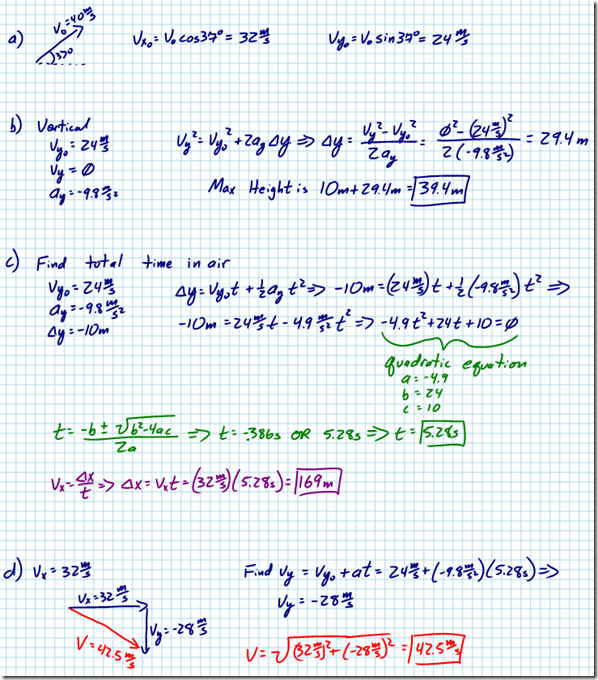 a) V₀=40 m/s 37° Vx₀ = V₀cos37° = 32 m/s Vy₀ = V₀sin37° = 24 m/s
b) Vertical
Vy₀ = 24 m/s
Vy = Ø
ay = -9.8 m/s²
Vy² = Vy₀² + 2ay Δy ⇒ Δy = (Vy² - Vy₀²)/(2ay) = (Ø² - (24 m/s)²)/(2(-9.8 m/s²)) = 29.4 m
Max Height is 10m + 29.4m = 39.4m
c) Find total time in air
Vy₀ = 24 m/s
ay = -9.8 m/s²
Δy = -10m
Δy = Vy₀t + ½ ay t² ⇒ -10m = (24 m/s)t + ½(-9.8 m/s²)t² ⇒
-10m = 24 m/s t - 4.9 m/s² t² ⇒ -4.9t² + 24t + 10 = Ø
quadratic equation
a = -4.9
b = 24
c = 10
t = (-b ± √(b²-4ac))/(2a) ⇒ t = -.386s OR 5.28s ⇒ t = 5.28s
Vx = Δx/t ⇒ Δx = Vxt = (32 m/s)(5.28s) = 169m
d) Vx = 32 m/s
Vx = 32 m/s
Vy = -28 m/s
V = 42.5 m/s
Find Vy = Vy₀ + at = 24 m/s + (-9.8 m/s²)(5.28s) ⇒
Vy = -28 m/s
V = √((32 m/s)² + (-28 m/s)²) = 42.5 m/s